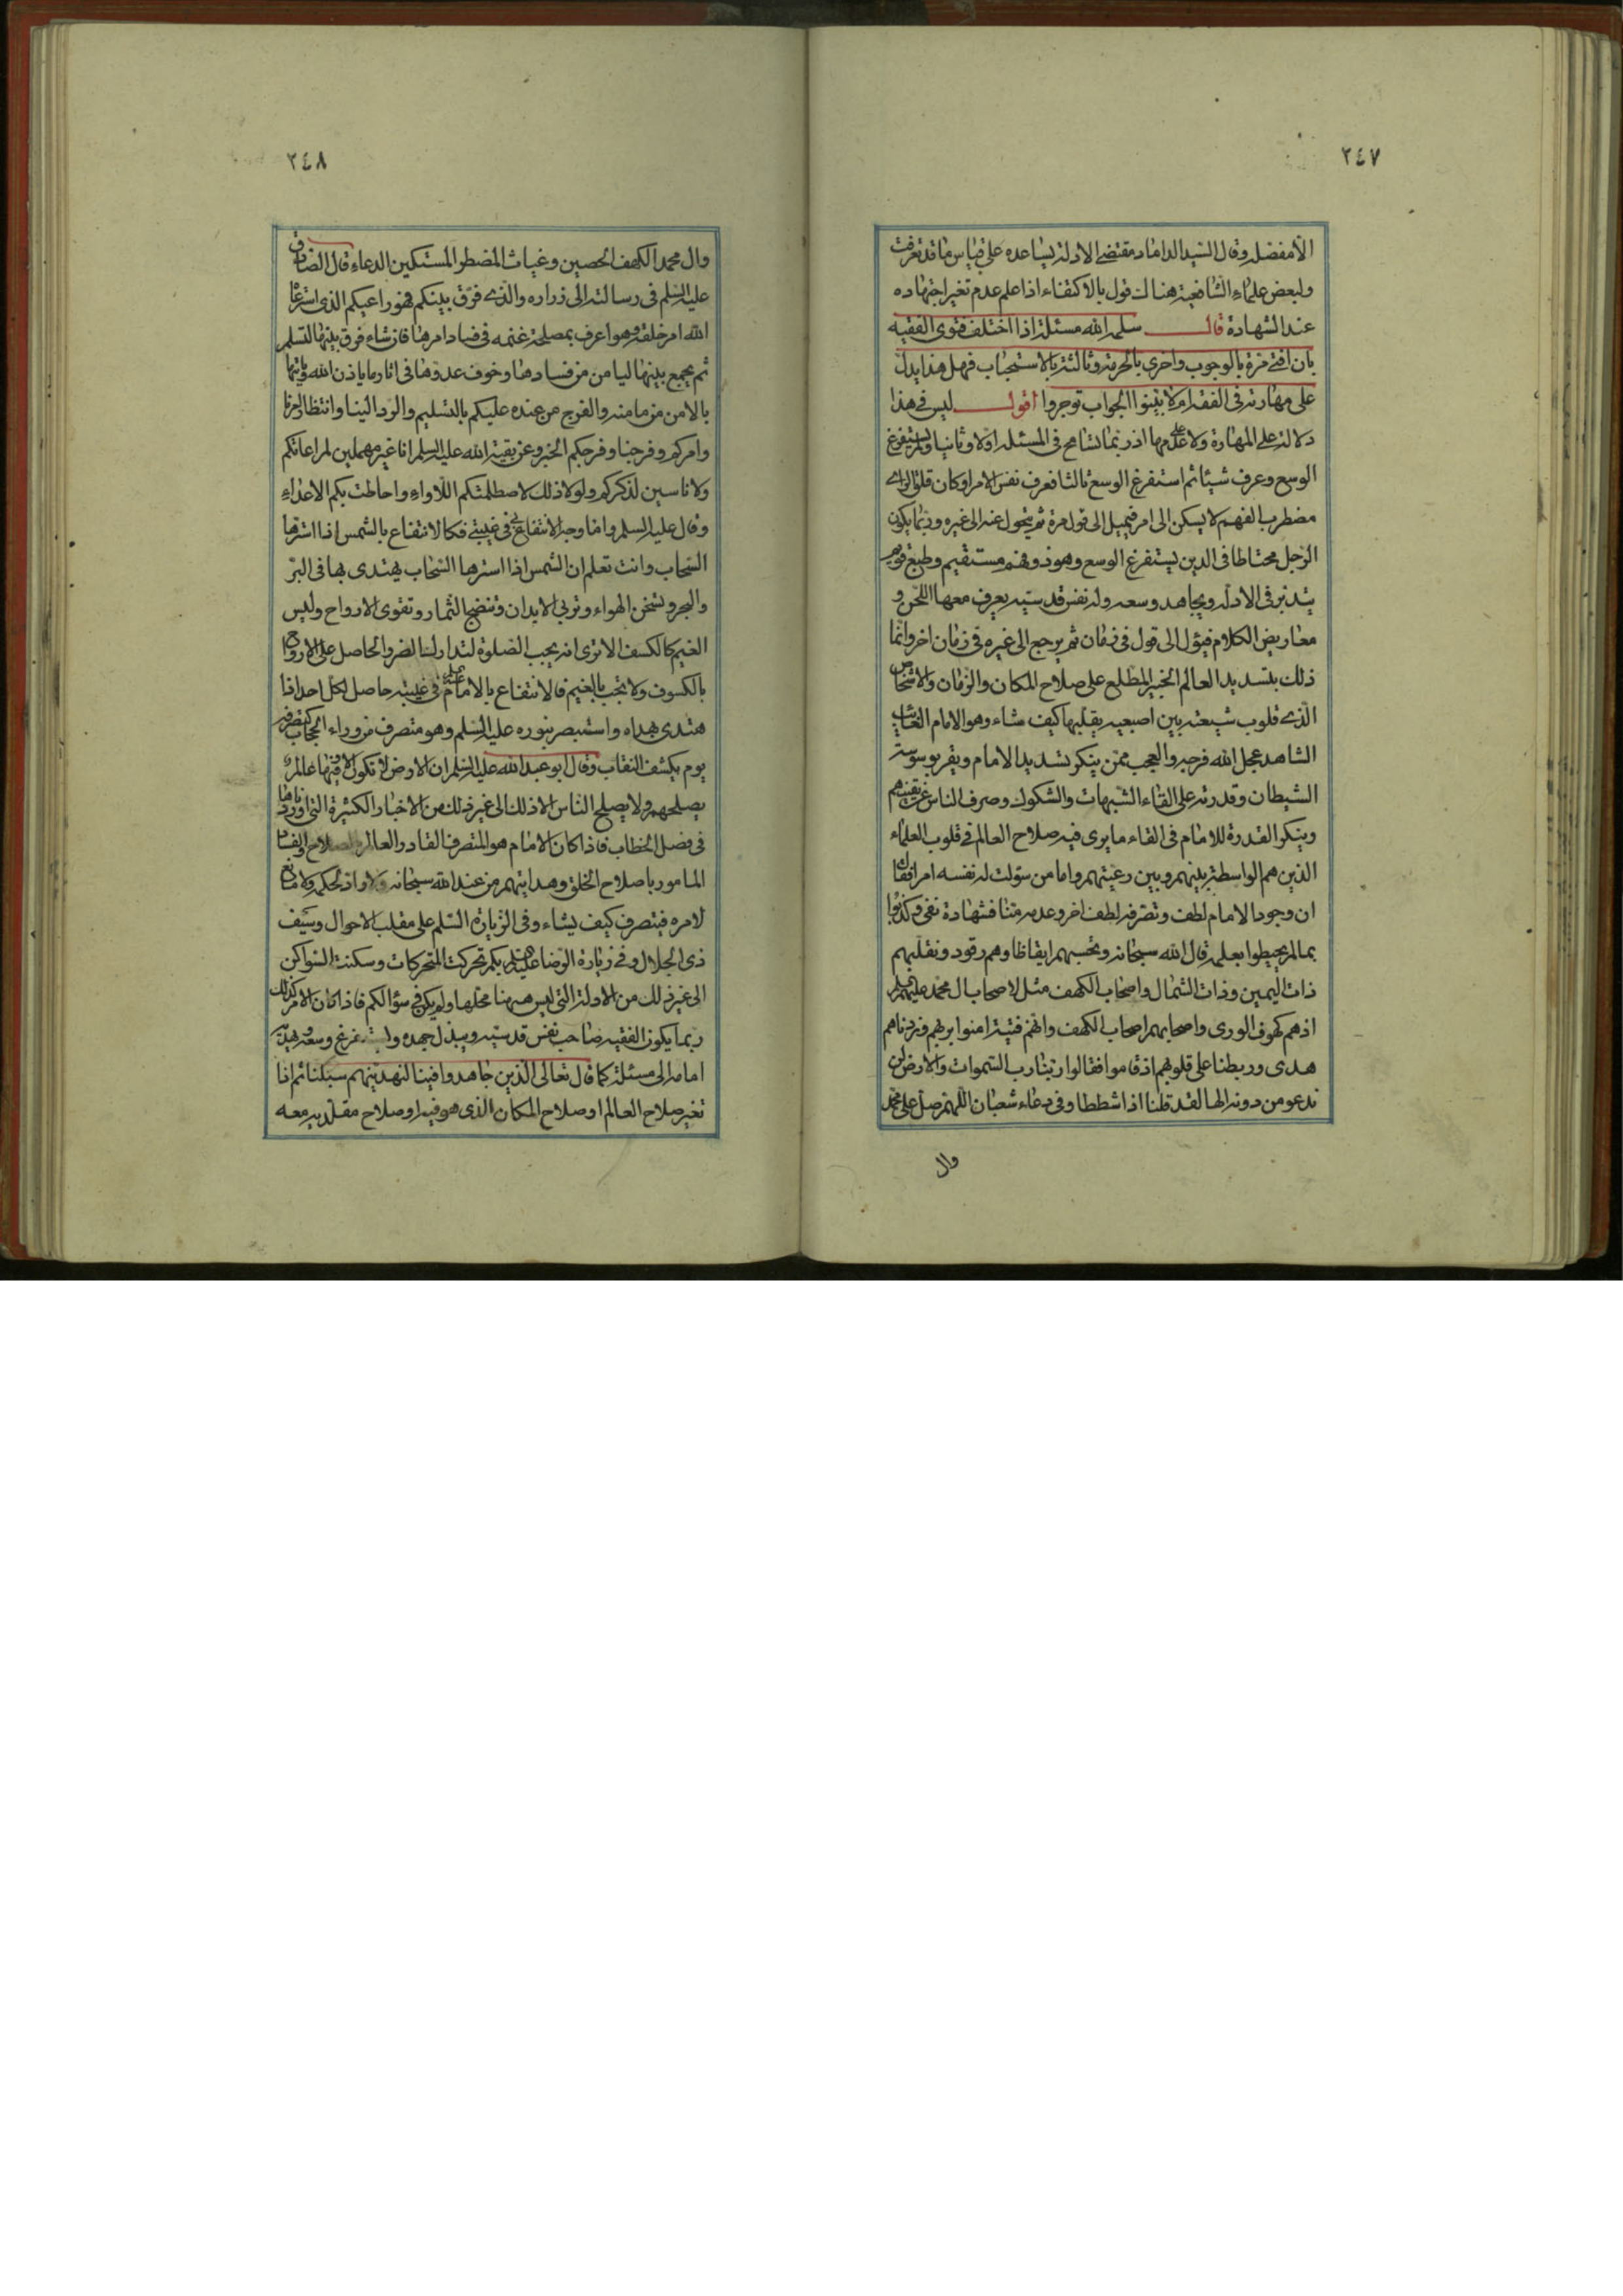 ٢٤٧
الا مفصلا وقال السيد الداماد مقتضى الادلة يساعده على قياس ما قد تعرفت
ولبعض علماء الشافعية هنالك قول بالاكتفاء اذا علم عدم تغير اجتهاده
عند الشهادة قال سلمه الله مسئلة اذا اختلف فتوى الفقيه
بان افتى مرة بالوجوب واخرى بالحرمة وثالثة بالاستحباب فهل هذا يدل
على مهارته في الفقه ام لا بينوا الجواب توجروا اقول ليس في هذا
دلالة على المهارة ولا على عدمها اذ ربما تسامح في المسئلة اولا وثانيا ولم يستفرغ
الوسع وعرف شيئا ثم استفرغ الوسع ثالثا فعرف نفس الامر او كان قلق الراى
مضطرب الفهم لا يسكن الى امر فيميل الى قول مرة ثم يتحول عنه الى غيره وربما يكون
الرجل محتاطا في الدين يستفرغ الوسع وهو ذو فهم مستقيم وطبع قويم
يتدبر في الادلة ويجاهد وسعه وله نفس قدسية يعرف معها اللحن و
معاريض الكلام فيؤل الى قول في زمان ثم يرجع الى غيره في زمان اخر وانما
ذلك بتسديد العالم الخبير المطلع على صلاح المكان والزمان والاشخاص
الذى قلوب شيعته بين اصبعيه يقلبها كيف شاء وهو الامام الغائب
الشاهد عجل الله فرجه والعجب ممن ينكر تسديد الامام ويقر بوسوسة
الشيطان وقدرته على القاء الشبهات والشكوك وصرف الناس عن يقينهم
وينكر القدرة للامام في القاء ما يرى فيه صلاح العالم في قلوب العلماء
الذين هم الواسطة بينهم وبين رعيتهم واما من سولت له نفسه امرا فقال
ان وجود الامام لطف وتصرفه لطف اخر وعدمه منا فشهادة نفى وكذبوا
بما لم يحيطوا بعلمه قال الله سبحانه وتحسبهم ايقاظا وهم رقود ونقلبهم
ذات اليمين وذات الشمال واصحاب الكهف مثل لاصحاب ال محمد عليهم السلم
اذ هم كهوف الورى واصحابهم اصحاب الكهف وانهم فتية امنوا بربهم وزدناهم
هدى وربطنا على قلوبهم اذ قاموا فقالوا ربنا رب السموات والارض لن
ندعو من دونه الها لقد قلنا اذا شططا وفي دعاء شعبان اللهم صل على محمد
وال
٢٤٨
وال محمد الكهف الحصين وغياث المضطر المستكين الدعاء قال الصادق
عليه السلم في رسالته الى زراره والذى فرق بينكم فهو راعيكم الذى استرعاه
الله امر خلقه وهو اعرف بمصلحة غنمه في فساد امرها فان شاء فرق بينها لتسلم
ثم يجمع بينها ليامن من فسادها وخوف عدوها في اثار ما ياذن الله ويأتيها
بالامن من مامنه والفرج من عنده عليكم بالتسليم والرد الينا وانتظار امرنا
وامركم وفرجنا وفرجكم الخبر وعن بقية الله عليه السلم انا غير مهملين لمراعاتكم
ولا ناسين لذكركم ولولا ذلك لاصطلمتكم اللاواء واحاطت بكم الاعداء
وقال عليه السلم واما وجه الانتفاع بى في غيبتى فكالانتفاع بالشمس اذا استرها
السحاب وانت تعلم ان الشمس اذا استرها السحاب يهتدى بها في البر
والبحر وتسخن الهواء وتربى الابدان وتنضج الثمار وتقوى الارواح وليس
الغيم كالكسف الا ترى انه يجب الصلوة لتدارك الضرر الحاصل على الارواح
بالكسوف ولا يجب بالغيم فالانتفاع بالامام عليه السلم في غيبته حاصل لكل احد اذا
هتدى بهداه واستبصر بنوره عليه السلم وهو متصرف من وراء الحجاب كتصرفه
يوم يكشف النقاب وقال ابو عبد الله عليه السلم ان الارض لا تكون الا وفيها عالم
يصلحهم ولا يصلح الناس الا ذلك الى غير ذلك من الاخبار الكثيرة التى اوردناها
في فصل الخطاب فاذا كان الامام هو المتصرف القادر العالم بالصلاح والفساد
المامور باصلاح الخلق وهدايتهم من عند الله سبحانه ولا راد لحكمه ولا مانع
لامره فيتصرف كيف يشاء وفي الزيارة السلم على مقلب الاحوال وسيف
ذى الجلال وفي زيارة الرضا عليه السلم بكم تحركت المتحركات وسكنت السواكن
الى غير ذلك من الادلة التى ليس ههنا محلها ولم يكن في سؤالكم فاذا كان الامر كذلك
ربما يكون الفقيه صاحب نفس قدسية ويبذل جهده ويستفرغ وسعه ويهديه
امامه الى مسئلة كما قال تعالى الذين جاهدوا فينا لنهدينهم سبلنا ثم اذا
تغير صلاح العالم او صلاح المكان الذى هو فيه او صلاح مقلديه معه